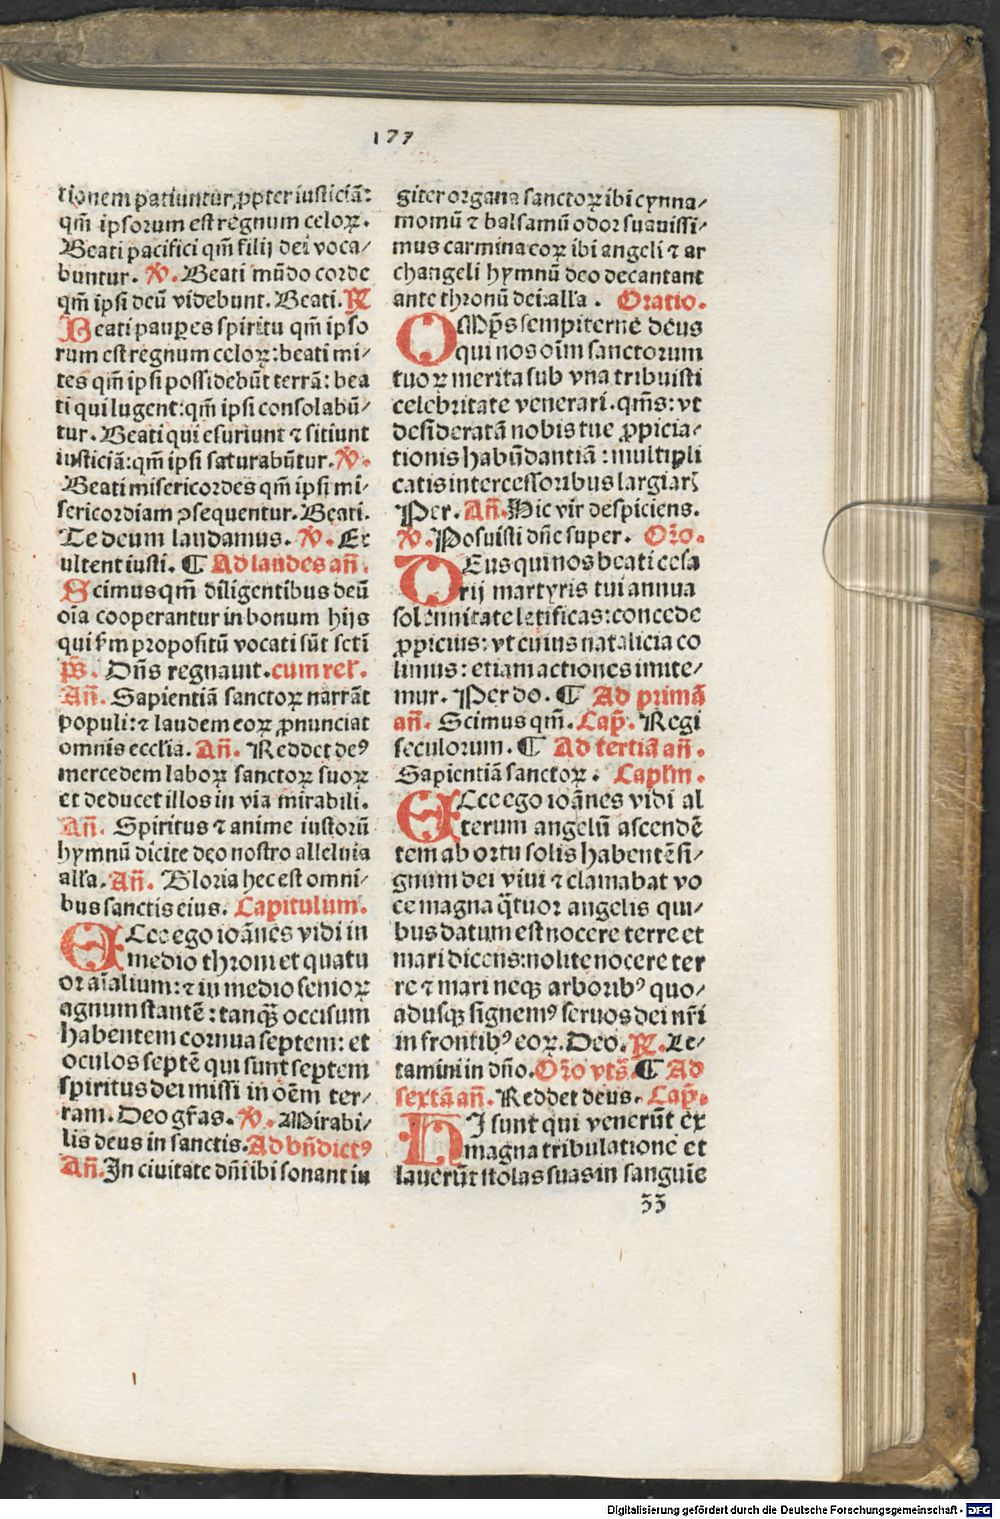 177
tionem patiuntur ꝓpter iusticiā:
qm̄ ipsorum est regnum celoꝝ.
Beati pacifici qm̄ filij dei voca⸗
buntur. ℣. Beati mūdo corde
qm̄ ipsi deū videbunt. Beati. ℟
Beati pauꝑes spiritu qm̄ ipso
rum est regnum celoꝝ: beati mi⸗
tes qm̄ ipsi possidebūt terrā: bea
ti qui lugent: qm̄ ipsi consolabū⸗
tur. Beati qui esuriunt ⁊ sitiunt
iusticiā: qm̄ ipsi saturabūtur. ℣.
Beati misericordes qm̄ ipsi mi⸗
sericordiam ꝯsequentur. Beati.
Te deum laudamus. ℣. Ex
ultent iusti. ¶ Ad laudes añ.
Scimus qm̄ diligentibus deū
oīa cooperantur in bonum hijs
qui ẜm propositū vocati sūt scti
ps̄. Dn̄s regnauit. cum rel.
Añ. Sapientiā sanctoꝝ narrāt
populi: ⁊ laudem eoꝝ ꝓnunciat
omnis ecclīa. Añ. Reddet deꝰ
mercedem laboꝝ sanctoꝝ suoꝝ
et deducet illos in via mirabili.
Añ. Spiritus ⁊ anime iustorū
hymnū dicite deo nostro alleluia
alla. Añ. Gloria hec est omni⸗
bus sanctis eius. Capitulum.
ECce ego ioānes vidi in
medio throni et quatu
or aīalium: ⁊ in medio senioꝝ
agnum stantē: tanqꝫ occisum
habentem cornua septem: et
oculos septē qui sunt septem
spiritus dei missi in oēm ter⸗
ram. Deo gras. ℣. Mirabi⸗
lis deus in sanctis. Ad bn̄dictꝰ
Añ. In ciuitate dn̄i ibi sonant iu
giter organa sanctoꝝ ibi cynna⸗
momū ⁊ balsamū odor suauissi⸗
mus carmina eoꝝ ibi angeli ⁊ ar
changeli hymnū deo decantant
ante thronū dei: alla. Oratio.
OMp̄s sempiterne deus
qui nos oīm sanctorum
tuoꝝ merita sub vna tribuisti
celebritate venerari. qm̄s: vt
desideratā nobis tue ꝓpicia⸗
tionis habūdantiā: multipli
catis intercessoribus largiarꝭ
Per. Añ. Hic vir despiciens.
℣. Posuisti dn̄e super. Oro.
DEus qui nos beati cesa
rij martyris tui annua
solennitate letificas: concede
ꝓpicius: vt cuius natalicia co
limus: etiam actiones imite⸗
mur. Per do. ¶ Ad primā
añ. Scimus qm̄. Cap̄. Regi
seculorum. ¶ Ad tertiā añ.
Sapientiā sanctoꝝ. Caplm.
ECce ego ioānes vidi al
terum angelū ascendē
tem ab ortu solis habentē si⸗
gnum dei viui ⁊ clamabat vo
ce magna q̄tuor angelis qui⸗
bus datum est nocere terre et
mari dicens: nolite nocere ter
re ⁊ mari neqꝫ arboribꝰ quo⸗
adusqꝫ signemꝰ seruos dei nr̄i
in frontibꝰ eoꝝ. Deo. ℟. Le⸗
tamini in dn̄o. Oro vts̄. ¶ Ad
sextā añ. Reddet deus. Cap̄.
HI sunt qui venerūt ex
magna tribulatione et
lauerūt stolas suas in sanguīe
33
Digitalisierung gefördert durch die Deutsche Forschungsgemeinschaft - DFG